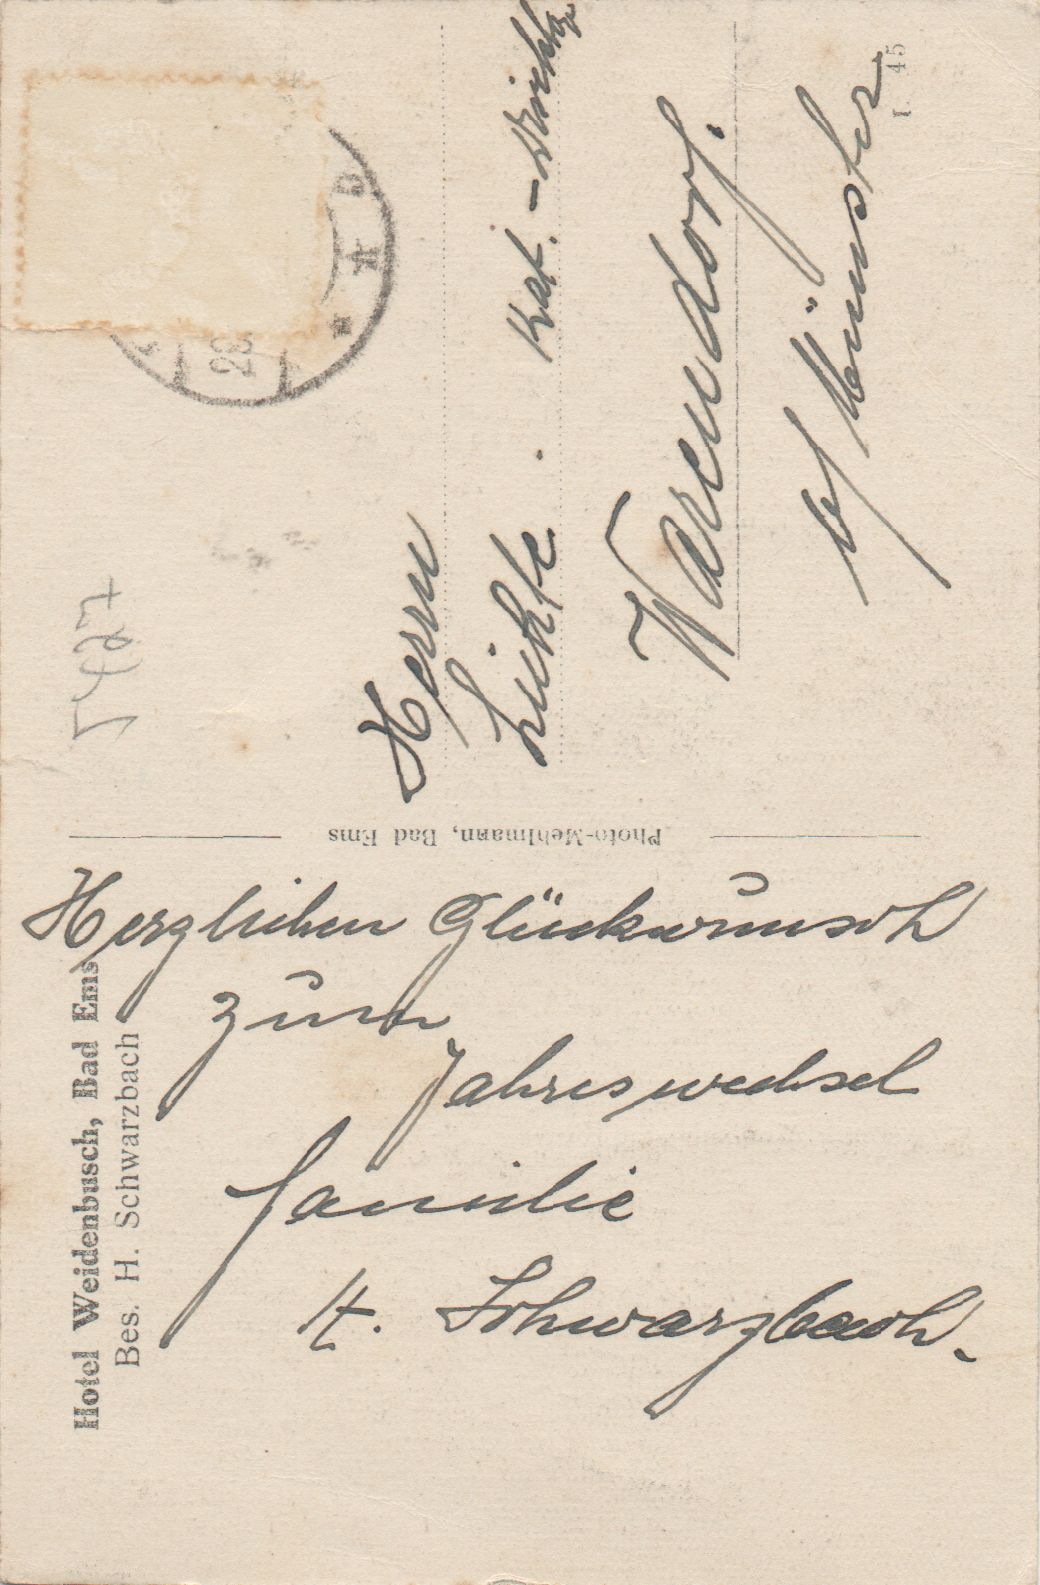 Hotel Weidenbusch, Bad Ems
Bes. H. Schwarzbach
Herzlichen Glückwunsch
zum
Jahreswechsel
Familie
H. Schwarzbach.
Photo-Mehlmann, Bad Ems
Herrn
Lichte. Kat.-
Warendorf.
b/ Münster
I. 45
28